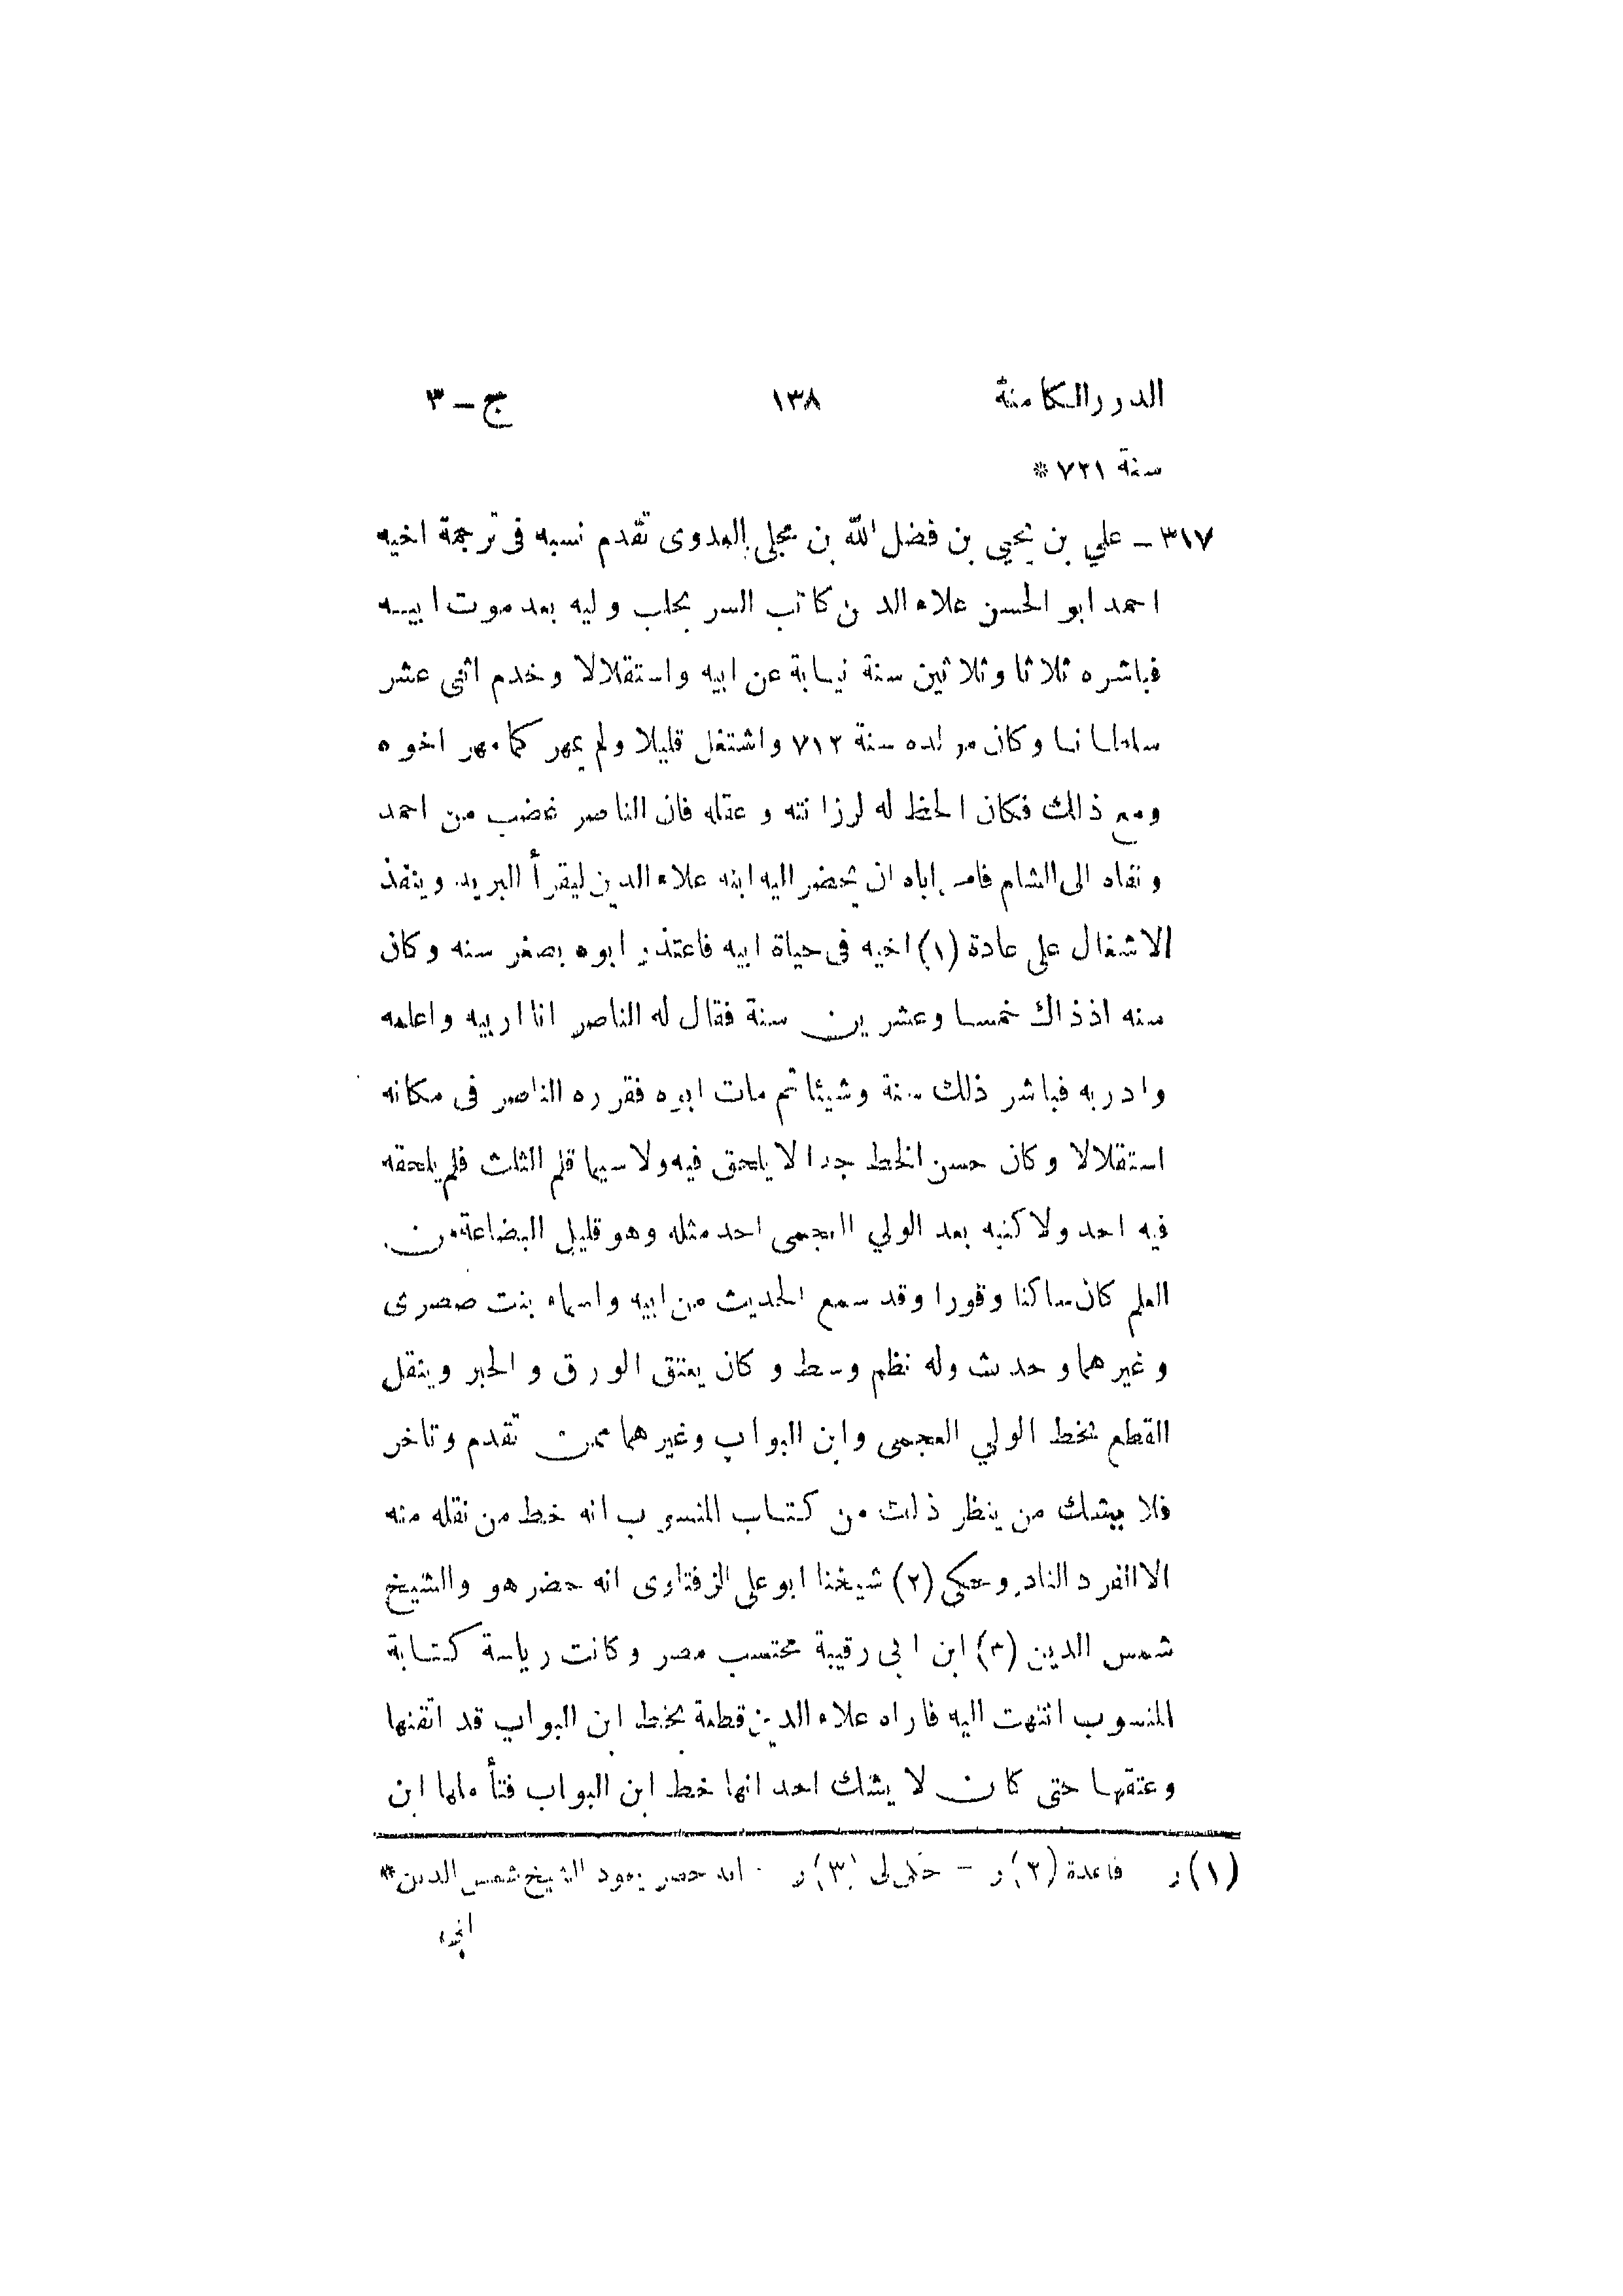 الدرر الكامنة ١٣٨ ج – ٣
سنة ٧٢١ *
٣١٧ – علي بن يحيى بن فضل الله بن مجلى العدوى تقدم نسبه فى ترجمة اخيه
احمد ابو الحسن علاء الدين كاتب السر بحلب وليه بعد موت ابيه
فباشره ثلاثا وثلاثين سنة نيابة عن ابيه واستقلالا وخدم اثنى عشر
سلطانا وكان مولده سنة ٧١٢ واشتغل قليلا ولم يمهر كما مهر اخوه
ومع ذلك فكان الحظ له لرزانته وعقله فان الناصر غضب من احمد
ونفاه الى الشام فامر اباه ان يحضر اليه ابنه علاء الدين ليقرأ البريد وينفذ
الاشغال على عادة (١) اخيه فى حياة ابيه فاعتذر ابوه بصغر سنه وكان
سنه اذ ذاك خمسا وعشرين سنة فقال له الناصر انا اربيه واعلمه
وادربه فباشر ذلك سنة وشيئا ثم مات ابوه فقرره الناصر فى مكانه
استقلالا وكان حسن الخط جدا لا يلحق فيه ولا سيما قلم الثلث فلم يلحقه
فيه احد ولا كتبه بعد الولي العجمى احد مثله وهو قليل البضاعة من
العلم كان ساكنا وقورا وقد سمع الحديث من ابيه واسماء بنت صصرى
وغيرهما وحدث وله نظم وسط وكان يعتق الورق والحبر وينقل
القطع بخط الولي العجمى وابن البواب وغيرهما ممن تقدم وتاخر
فلا يشك من ينظر ذلك من كتاب المنسوب انه خط من نقله منه
الا الفرد النادر وحكى (٢) شيخنا ابو على الزفتاوى انه حضر هو والشيخ
شمس الدين (٣) ابن ابى رقيبة محتسب مصر وكانت رياسة كتابة
المنسوب انتهت اليه فاراه علاء الدين قطعة بخط ابن البواب قد اتقنها
وعتقها حتى كان لا يشك احد انها خط ابن البواب فتأملها ابن
(١) ر قاعدة (٢) ر – حكى لى (٣) ر انه حضر الشيخ شمس الدين *